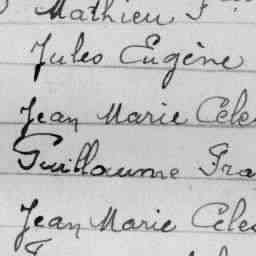 Mathieu F
Jules Eugène
Jean Marie Céles
Guillaume Fra
Jean Marie Céles